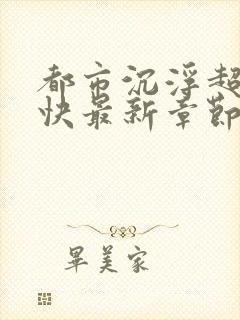 都市沉浮超
快最新章節
畢美家